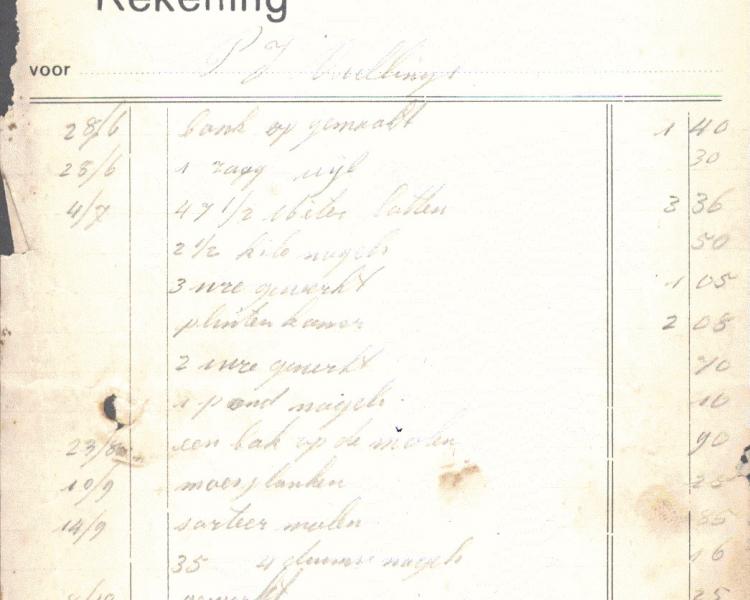 Rekening
voor P J Vullings
28/6 bank op gemaakt 1 40
28/6 1 zaag vijl 30
4/7 47 1/2 meter latten 3 36
2 1/2 kilo nagels 50
3 ure gewerkt 1 05
plinten kamer 2 08
2 ure gewerkt 70
1 pond nagels 10
23/8 een bak op de molen 90
10/9 25
14/9 sorteer molen 85
35 4 duims nagels 16
gewerkt 25